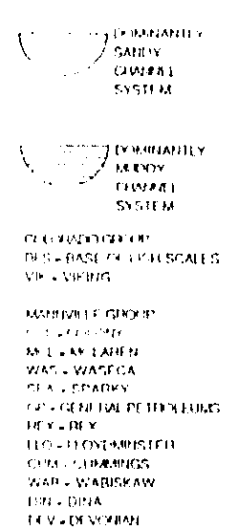 DOMINANTLY
SANDY
CHANNEL
SYSTEM
DOMINANTLY
MUDDY
CHANNEL
SYSTEM
COLORADO GROUP
BFS = BASE OF FISH SCALES
VIK = VIKING
MANNVILLE GROUP
COLONY
McL = McLAREN
WAS = WASECA
SPA = SPARKY
GP = GENERAL PETROLEUMS
REX = REX
LLO = LLOYDMINSTER
CUM = CUMMINGS
WAB = WABISKAW
DIN = DINA
DEV = DEVONIAN